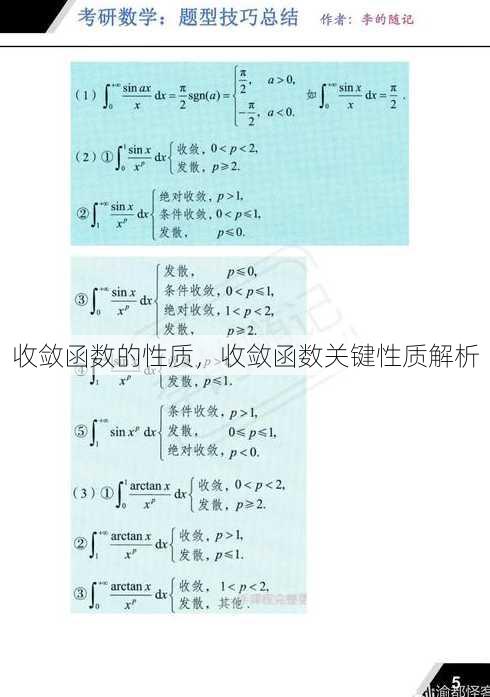 考研数学：题型技巧总结 作者：李的随记
(1) ∫₀^{+∞} sin ax / x dx = π/2 sgn(a) = { π/2, a>0, -π/2, a<0. 如 ∫₀^{+∞} sin x / x dx = π/2.
(2) ① ∫₀^1 sin x / x^p dx { 收敛, 0<p<2, 发散, p≥2.
② ∫₁^{+∞} sin x / x^p dx { 绝对收敛, p>1, 条件收敛, 0<p≤1, 发散, p≤0.
③ ∫₀^{+∞} sin x / x^p dx { 发散, p≤0, 条件收敛, 0<p≤1, 绝对收敛, 1<p<2, 发散, p≥2.
收敛函数的性质，收敛函数关键性质解析
发散, p≤1.
⑤ ∫₁^{+∞} sin x^p dx { 条件收敛, p>1, 发散, 0≤p≤1, 绝对收敛, p<0.
(3) ① ∫₀^1 arctan x / x^p dx { 收敛, 0<p<2, 发散, p≥2.
② ∫₁^{+∞} arctan x / x^p dx { 收敛, p>1, 发散, p≤1.
③ ∫₀^{+∞} arctan x / x^p dx { 收敛, 1<p<2, 发散, 其他.
5